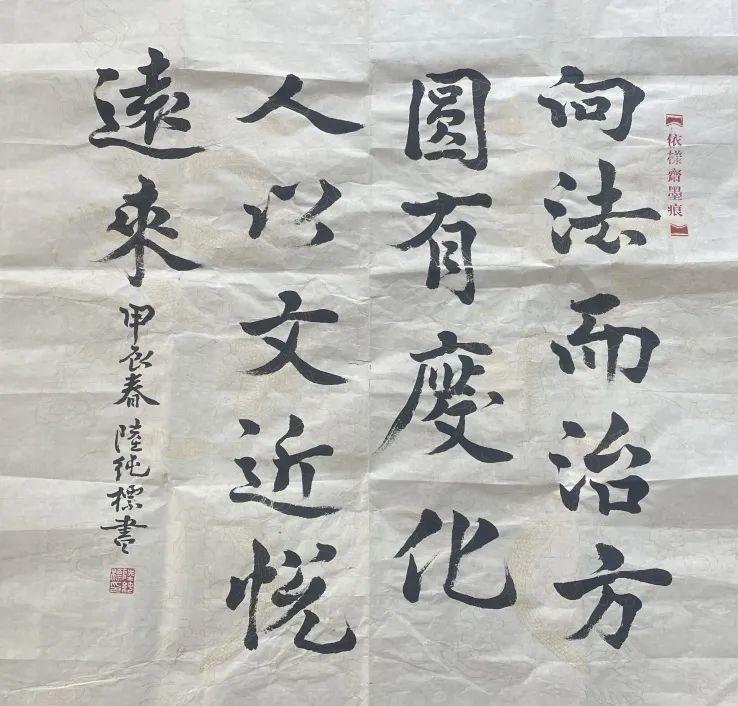 依樣齋墨痕
向法而治方
圓有度化
人以文近悅
遠來
甲辰春 陸純標書